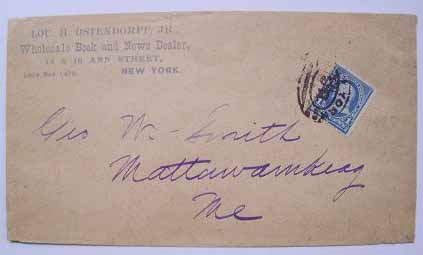 LOU. H. OSTENDORFF, JR.,
Wholesale Book and News Dealer,
14 & 16 ANN STREET,
NEW YORK.
YORK
Geo W. Smith
Mattawamkeag
Me